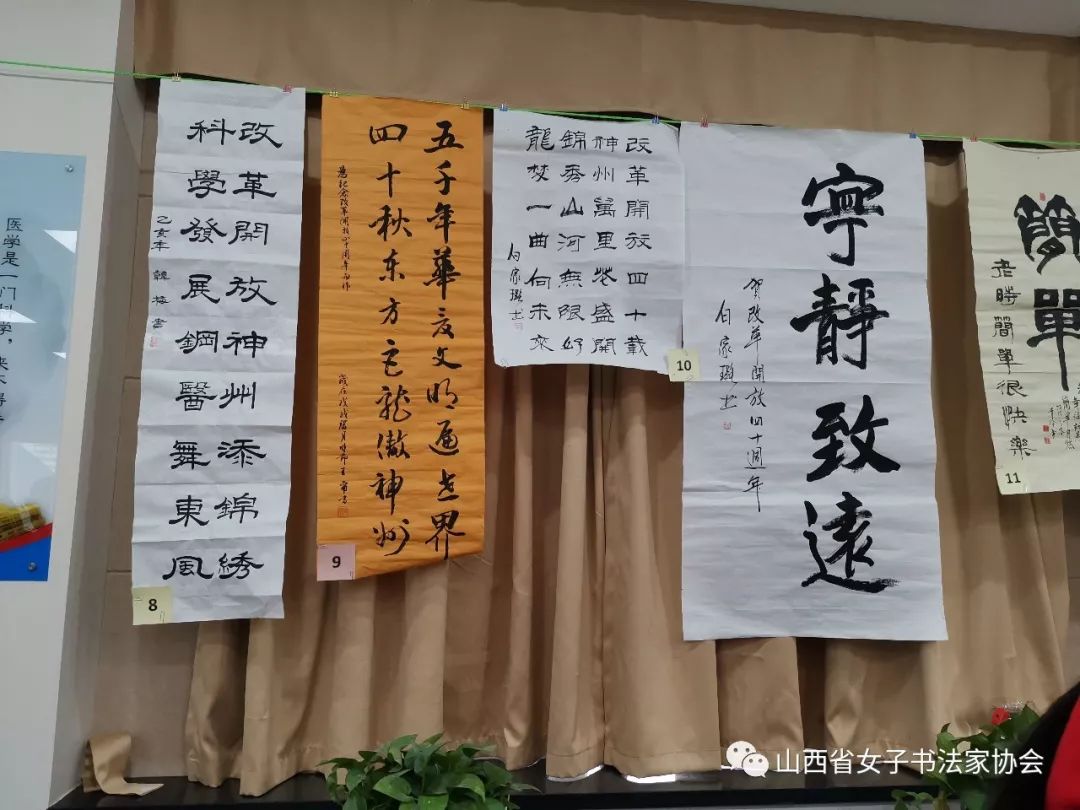 医学是一门科学，
改革開放神州添錦綉
科學發展鋼醫舞東風
乙亥年 韓梅書
8
五千年華夏文明遍世界
四十秋东方巨龍傲神州
為紀念改革開放四十周年而作
歲在戊戌臘月
9
改革開放四十載
神州萬里花盛開
錦秀山河無限好
龍焚一曲向未來
白家
10
寧靜致遠
賀改革開放四十週年
白家
簡單
老時簡單很快樂
11
山西省女子书法家协会